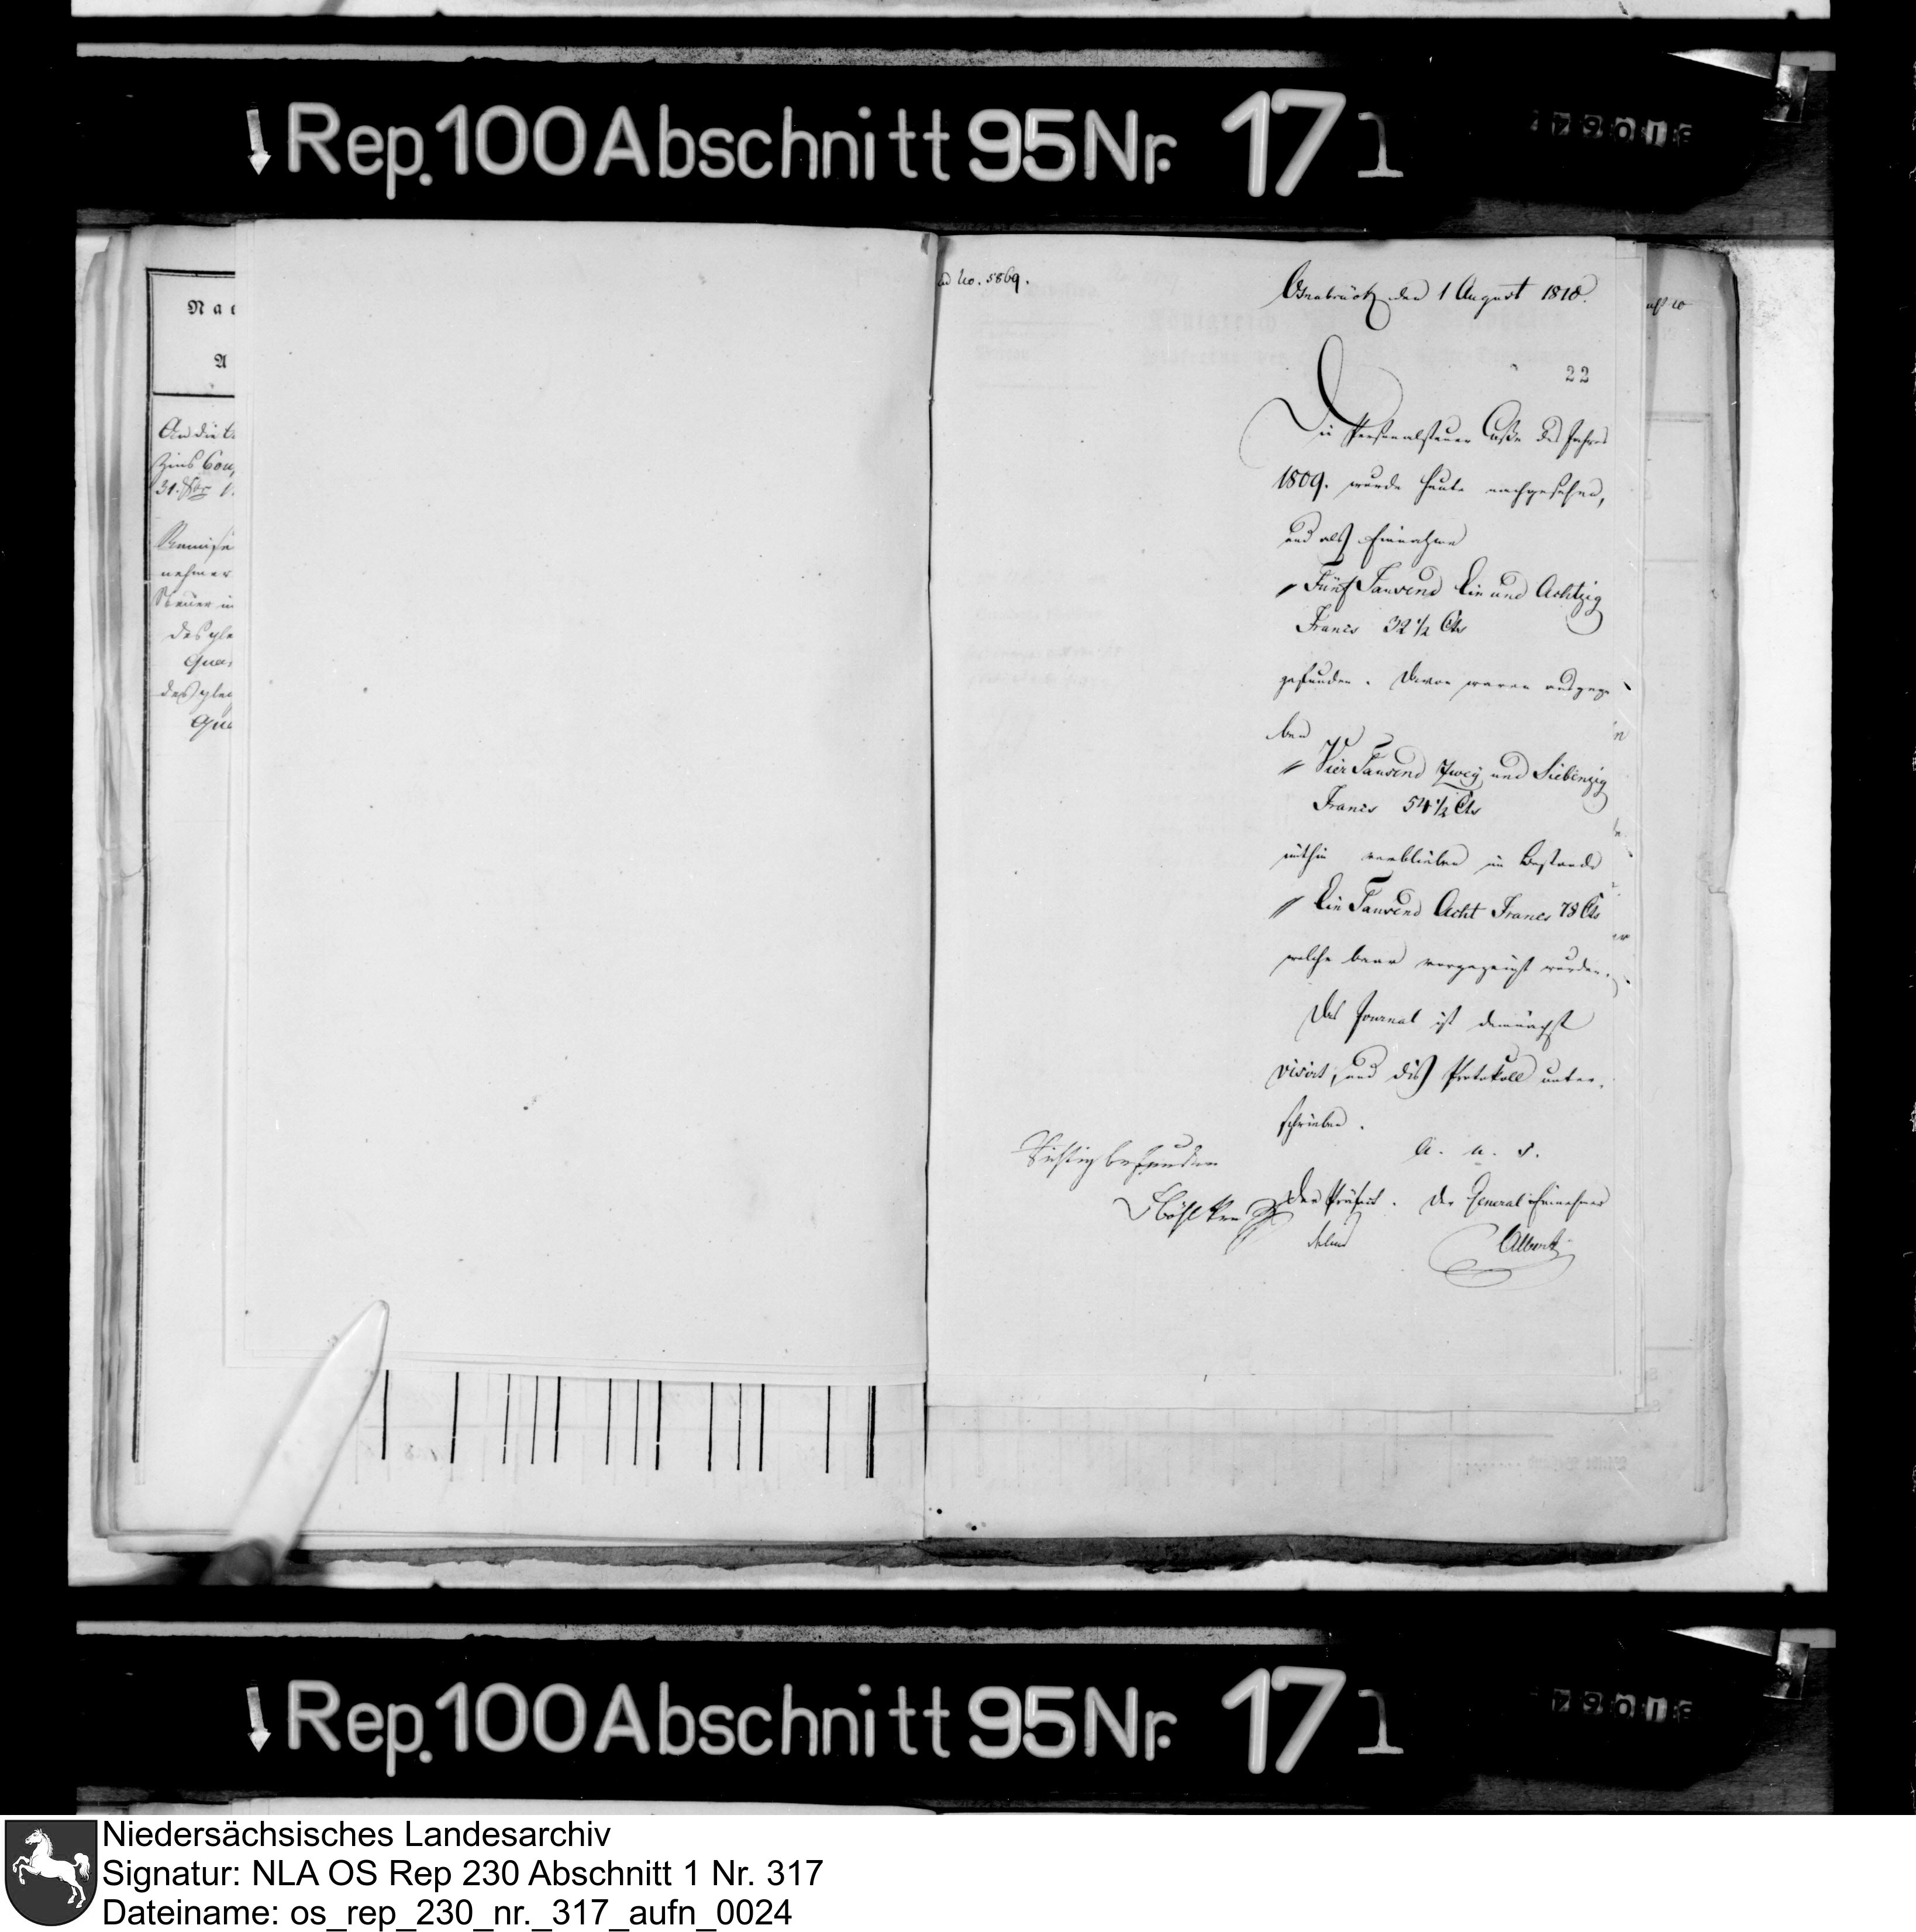 Rep. 100 Abschnitt 95 Nr. 171
Nac
A
An die
Zins Cou
Remise
nehmer
Steuer in
des ple
Quar
des ple
Qua
ad No. 5869.
Osnabrück den 1 August 1810.
22
Die Personalsteuer Casse des Jahres
1809. wurde heute nachgesehen,
und als Einnahme
Fünf Tausend Ein und Achtzig
Francs 32 1/2 Cts
gefunden. Davon waren ausgege
ben
Vier Tausend Zwey und Siebenzig
Francs 54 1/2 Cts
mithin verblieben im Bestande
Ein Tausend Acht Francs 78 Cts
welche baar vorgezeigt wurden.
Das Journal ist demnächst
visirt, und dies Protokoll unter-
schrieben.
a. u. s.
Richtig befunden
Der Präfect. Der General Einnehmer
Alberti
Rep. 100 Abschnitt 95 Nr. 171
Niedersächsisches Landesarchiv
Signatur: NLA OS Rep 230 Abschnitt 1 Nr. 317
Dateiname: os_rep_230_nr._317_aufn_0024